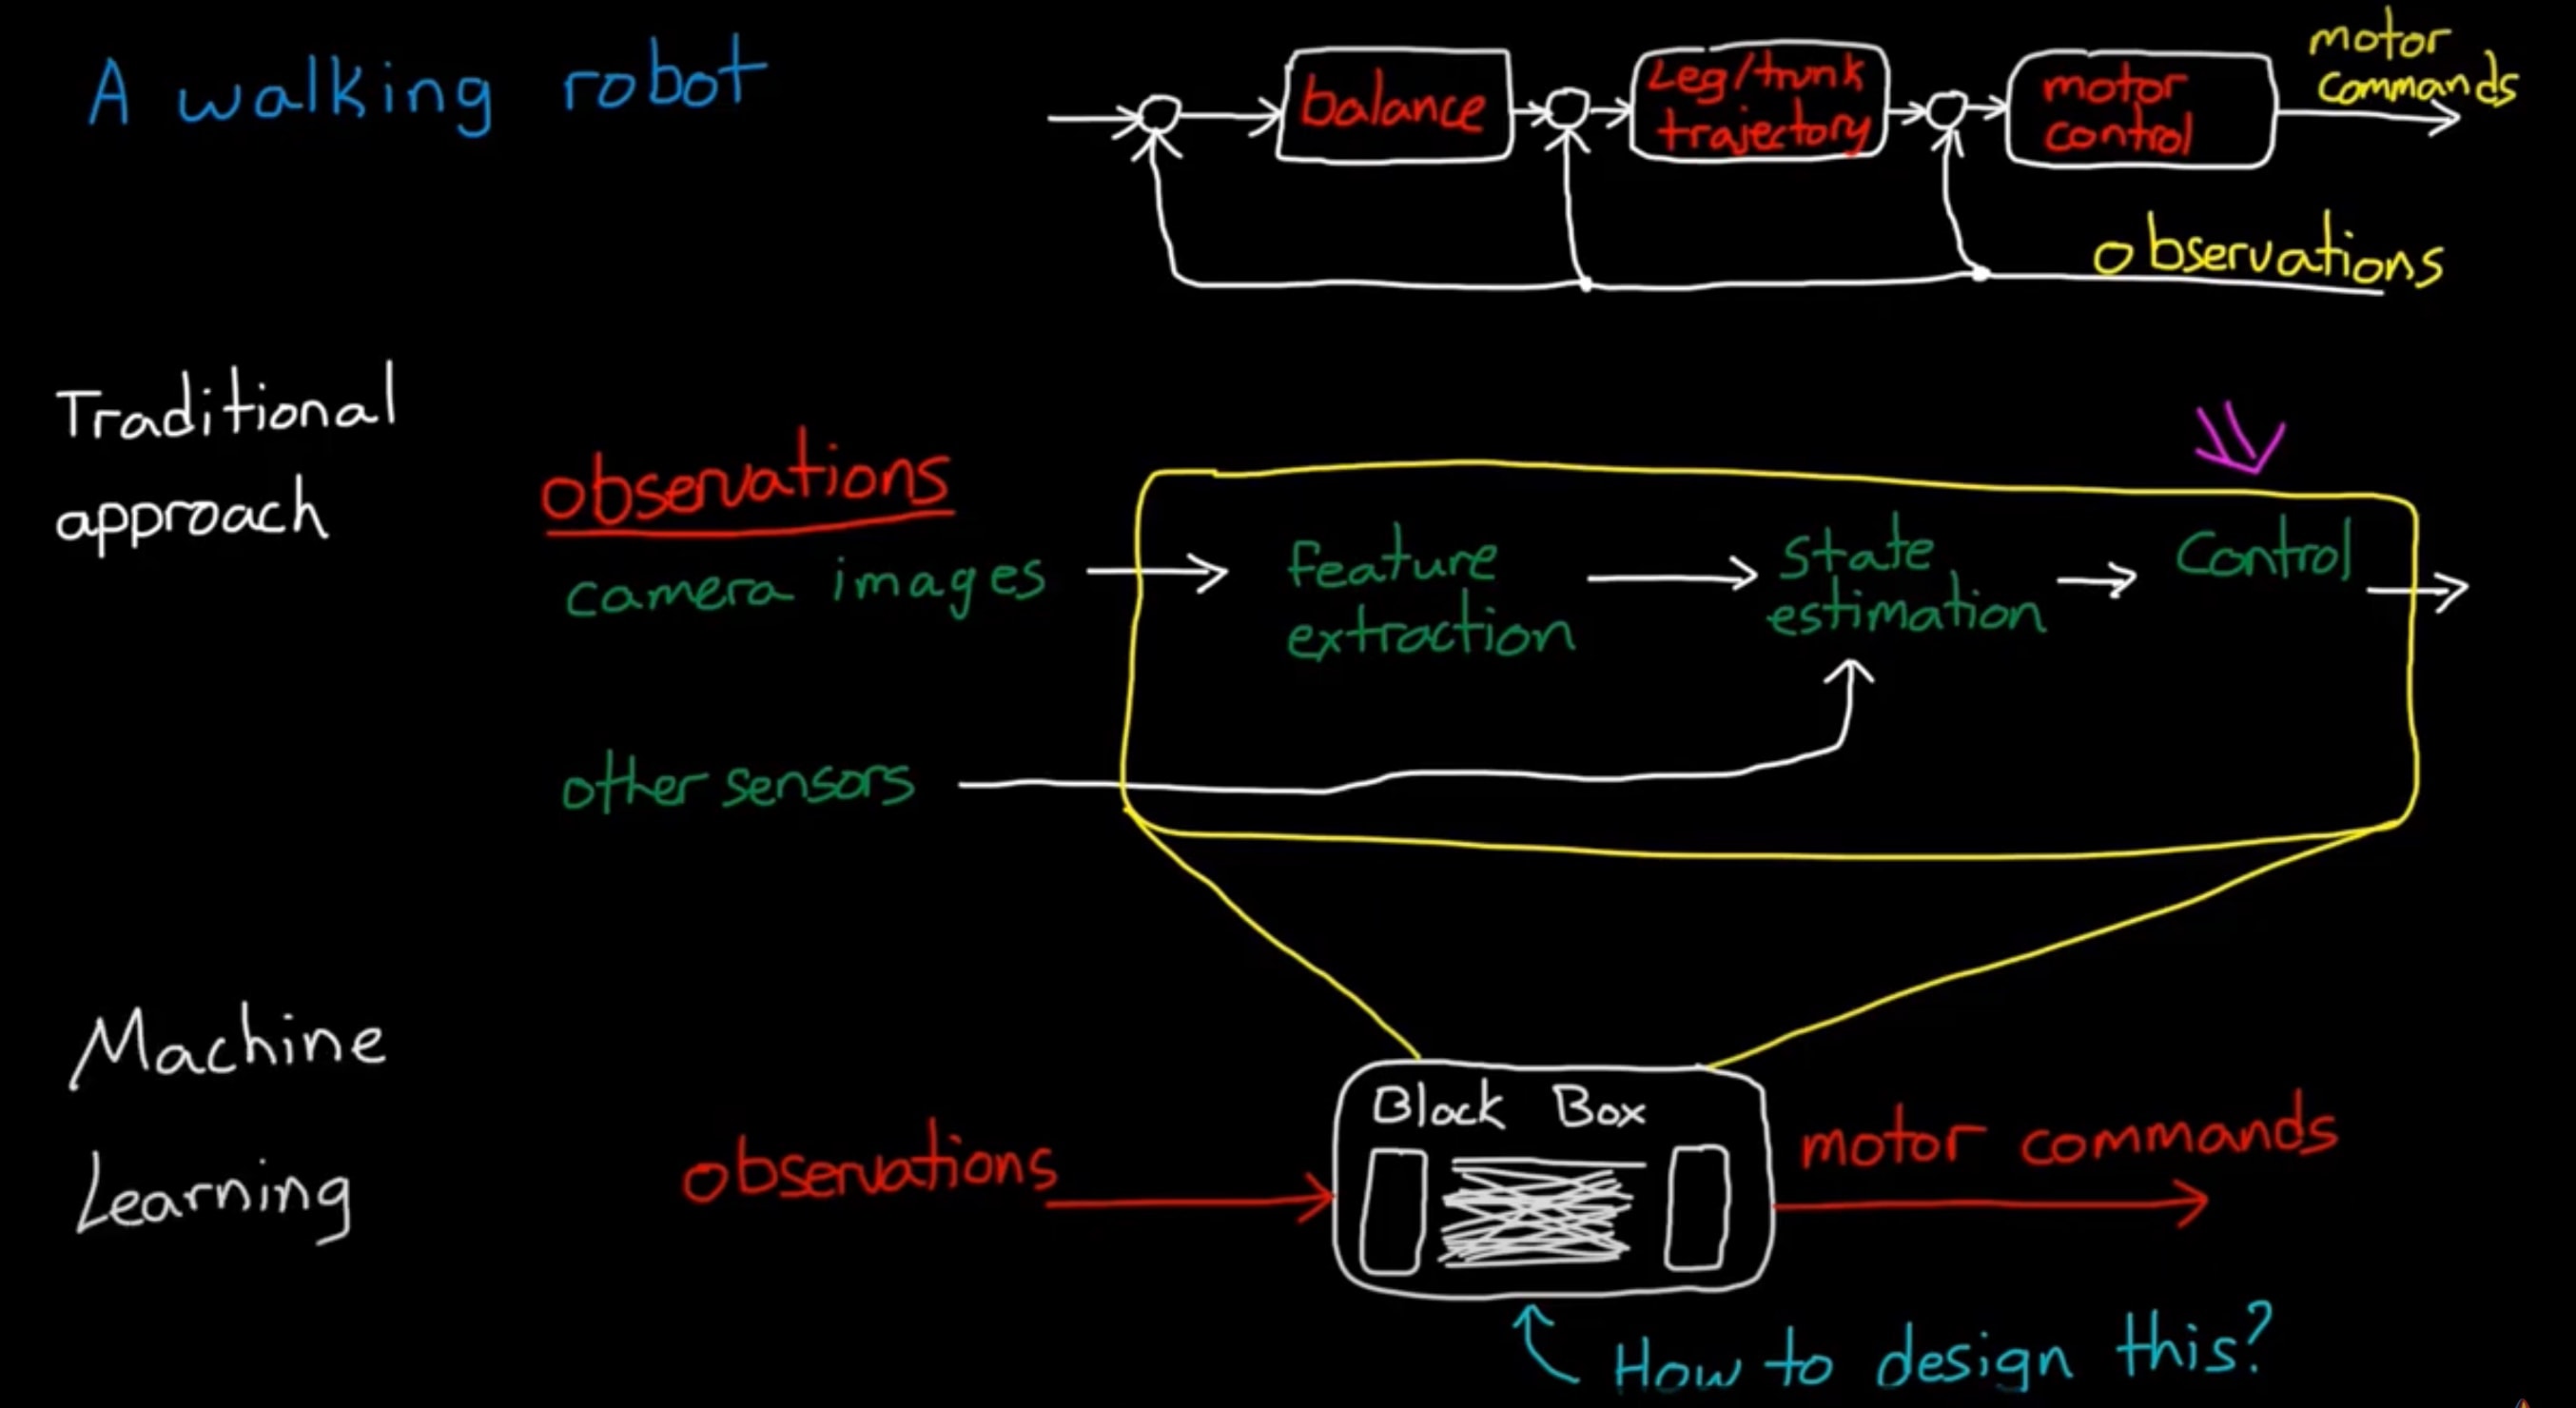 A walking robot
balance
Leg/trunk
trajectory
motor
control
motor
commands
observations
Traditional
approach
observations
camera images
feature
extraction
State
estimation
Control
other sensors
Machine
Learning
observations
Black Box
motor commands
How to design this?